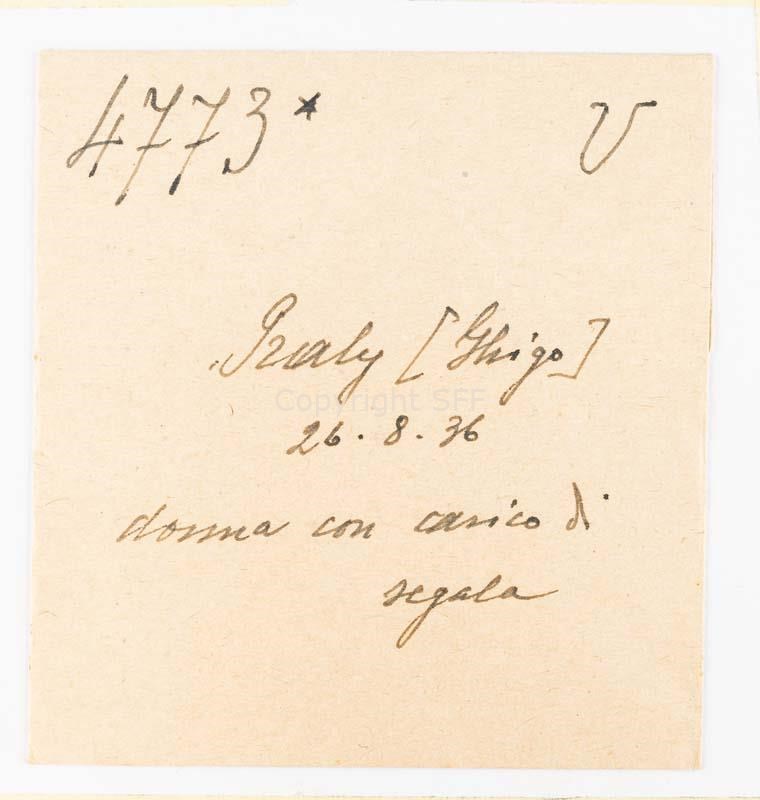 4773* V
Praly [Ghigo]
Copyright SFF
26.8.36
donna con carico di
segala